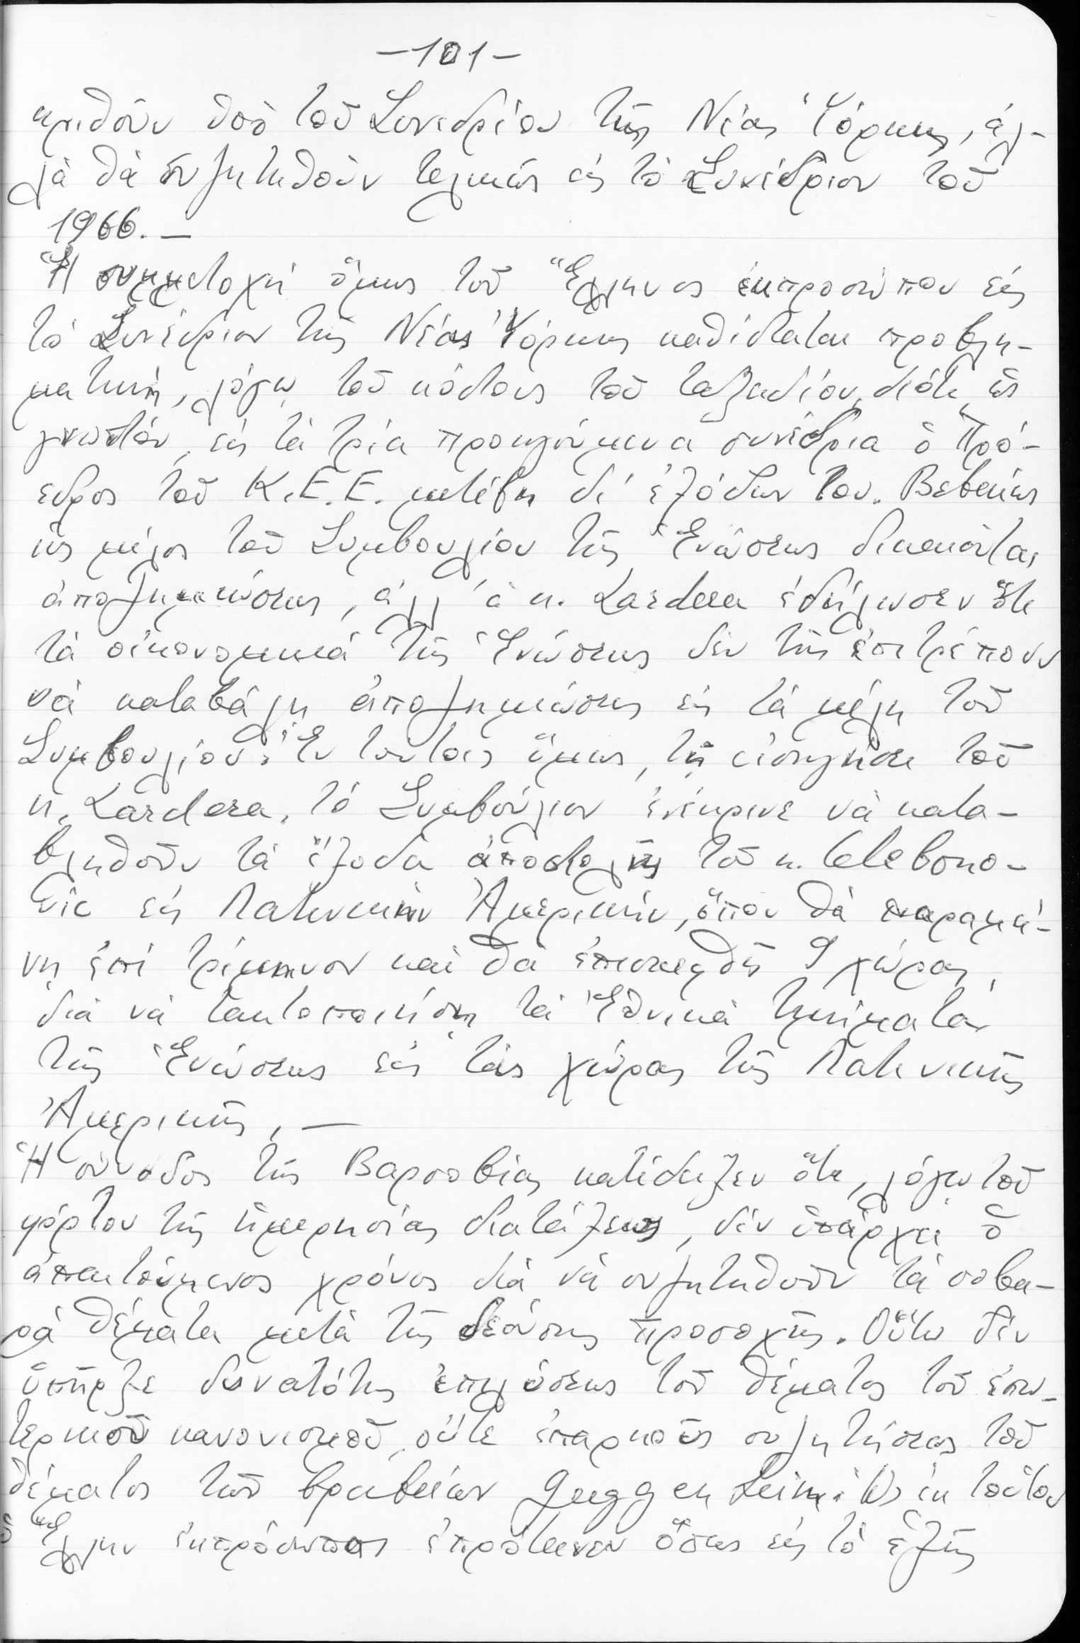 -101-
κριθοῦν ὑπὸ τοῦ Συνεδρίου τῆς Νέας Ὑόρκης, ἀλ-
λὰ θὰ συζητηθοῦν τελικῶς εἰς τὸ Συνέδριον τοῦ
1966.—
Ἡ συμμετοχὴ ὅμως τοῦ Ἕλληνος ἐκπροσώπου εἰς
τὸ Συνέδριον τῆς Νέας Ὑόρκης καθίσταται προβλη-
ματική, λόγῳ τοῦ κόστους τοῦ ταξειδίου, διότι, ὡς
γνωστόν, εἰς τὰ τρία προηγούμενα συνέδρια ὁ Πρό-
εδρος τοῦ Κ.Ε.Ε. μετέβη δι' ἐξόδων του. Βεβαίως
ὡς μέλος τοῦ Συμβουλίου τῆς Ἑνώσεως δικαιοῦται
ἀποζημιώσεως, ἀλλ' ὁ κ. Lardera ἐδήλωσεν ὅτι
τὰ οἰκονομικὰ τῆς Ἑνώσεως δὲν τῆς ἐπιτρέπουν
νὰ καταβάλῃ ἀποζημιώσεις εἰς τὰ μέλη τοῦ
Συμβουλίου. Ἐν τούτοις ὅμως, τῇ εἰσηγήσει τοῦ
κ. Lardera, τὸ Συμβούλιον ἐνέκρινε νὰ κατα-
βληθοῦν τὰ ἔξοδα ἀποστολῆς τοῦ κ. Celebono-
vic εἰς Λατινικὴν Ἀμερικήν, ὅπου θὰ παραμεί-
νῃ ἐπὶ τρίμηνον καὶ θὰ ἐπισκεφθῇ 9 χώρας,
διὰ νὰ τακτοποιήσῃ τὰ Ἐθνικὰ τμήματα
τῆς Ἑνώσεως εἰς τὰς χώρας τῆς Λατινικῆς
Ἀμερικῆς.—
Ἡ σύνοδος τῆς Βαρσοβίας κατέδειξεν ὅτι, λόγῳ τοῦ
φόρτου τῆς ἡμερησίας διατάξεως, δὲν ὑπάρχει ὁ
ἀπαιτούμενος χρόνος διὰ νὰ συζητηθοῦν τὰ σοβα-
ρὰ θέματα μετὰ τῆς δεούσης προσοχῆς. Οὕτω δὲν
ὑπῆρξε δυνατότης ἐπιλύσεως τοῦ θέματος τοῦ ἐσω-
τερικοῦ κανονισμοῦ, οὔτε ἐπαρκοῦς συζητήσεως τοῦ
θέματος τῶν βραβείων Guggenheim. Ὡς ἐκ τούτου
ὁ Ἕλλην ἐκπρόσωπος ἐπρότεινεν ὅπως εἰς τὸ ἑξῆς